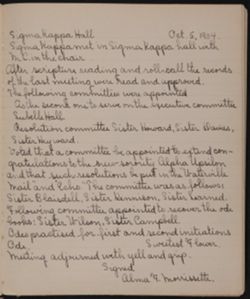 Sigma Kappa Hall Oct. 5, 1904.
Sigma Kappa met in Sigma Kappa hall with
M. L. in the chair.
After scripture reading and roll-call the records
of the last meeting were read and approved.
The following committees were appointed
As the second one to serve on the executive committee
Hall
Resolution committee Sister Howard, Sister
Sister Hayward.
Voted that a committee be appointed to extend con-
gratulations to the new sorority Alpha Upsilon
and that such resolutions be put in the Waterville
Mail and Echo. The committee was as follows:
Sister Blaisdell, Sister Kennison, Sister Learned.
Following committee appointed to recover the ode
books: Sister Wilson, Sister Campbell.
Odes practised for first and second initiations
Ode. Sweetest Flower.
Meeting adjourned with yell and grip.
Signed
Alma F. Morrissette.